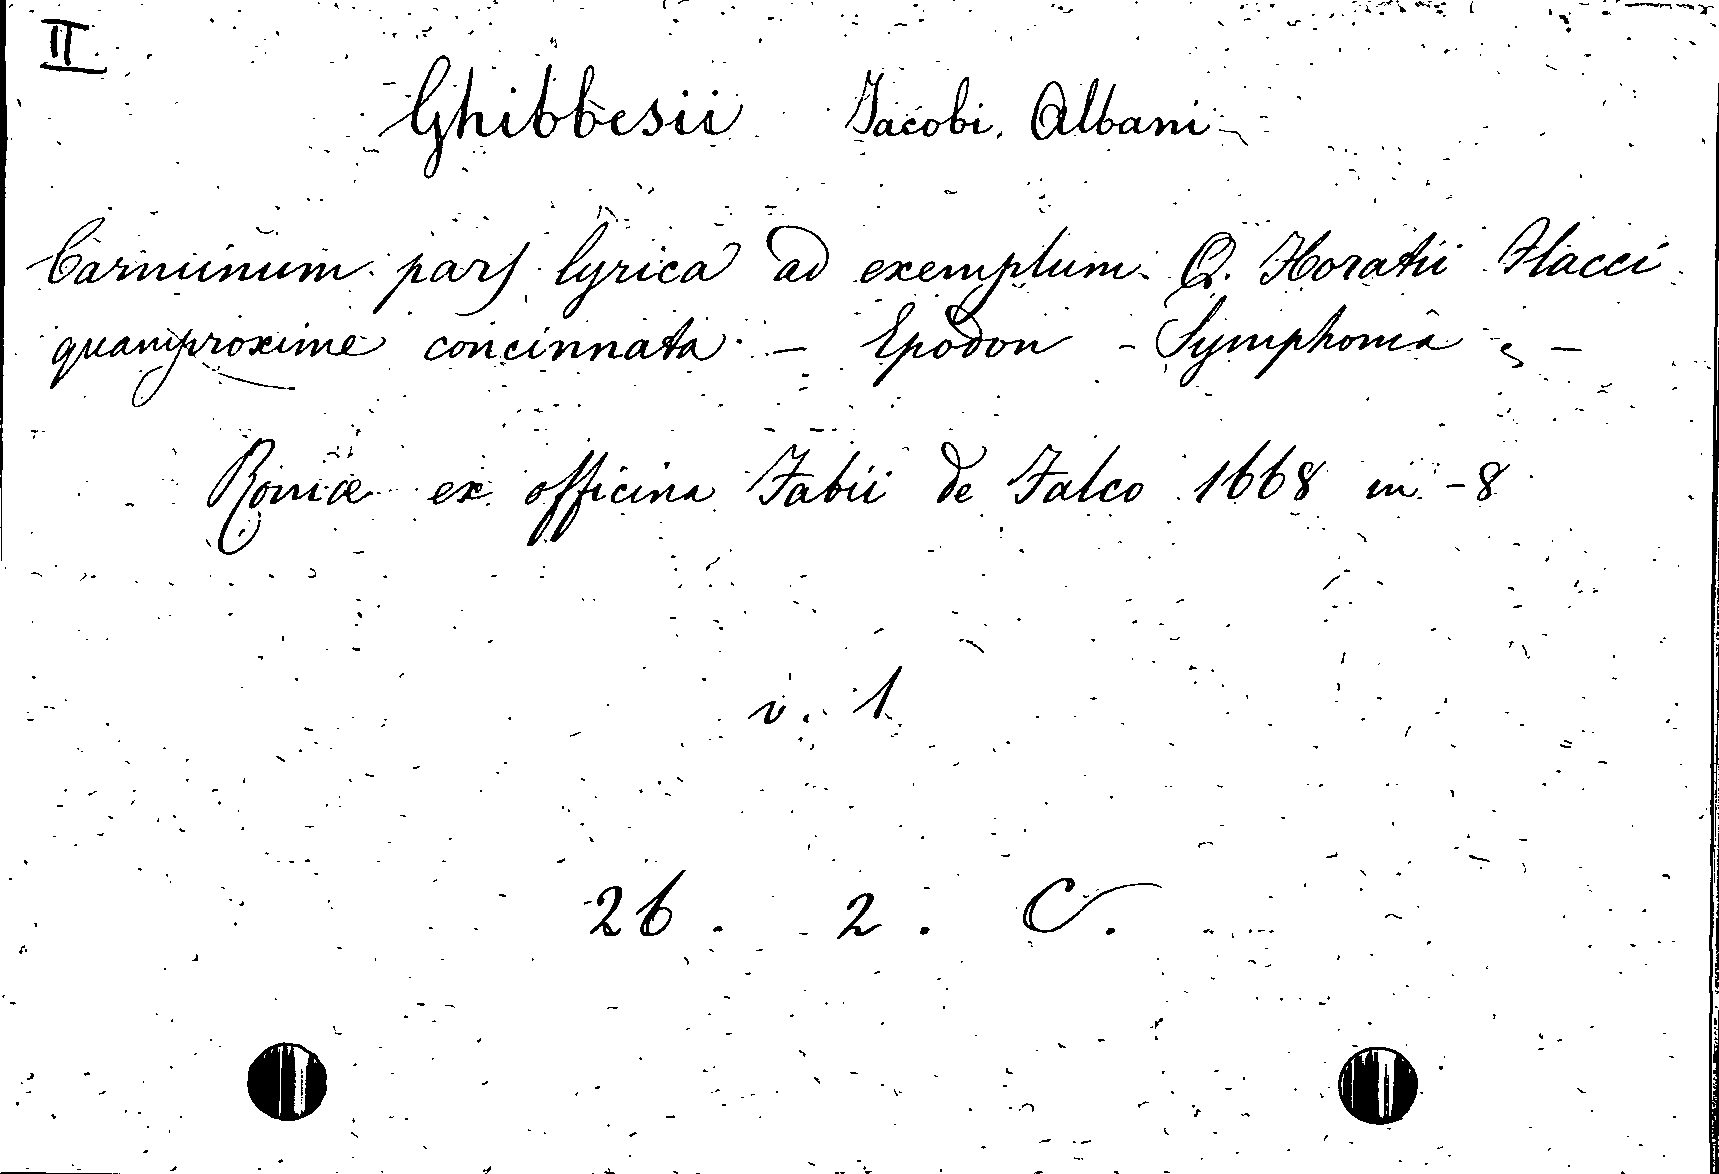 II
Ghibbesii Jacobi. Albani
Carminum pars lyrica ad exemplum Q. Horatii Flacci
quamproxime concinnata - Epodon - Symphonia -
Romæ ex officina Fabii de Falco 1668 in -8
v. 1
26. 2. C.